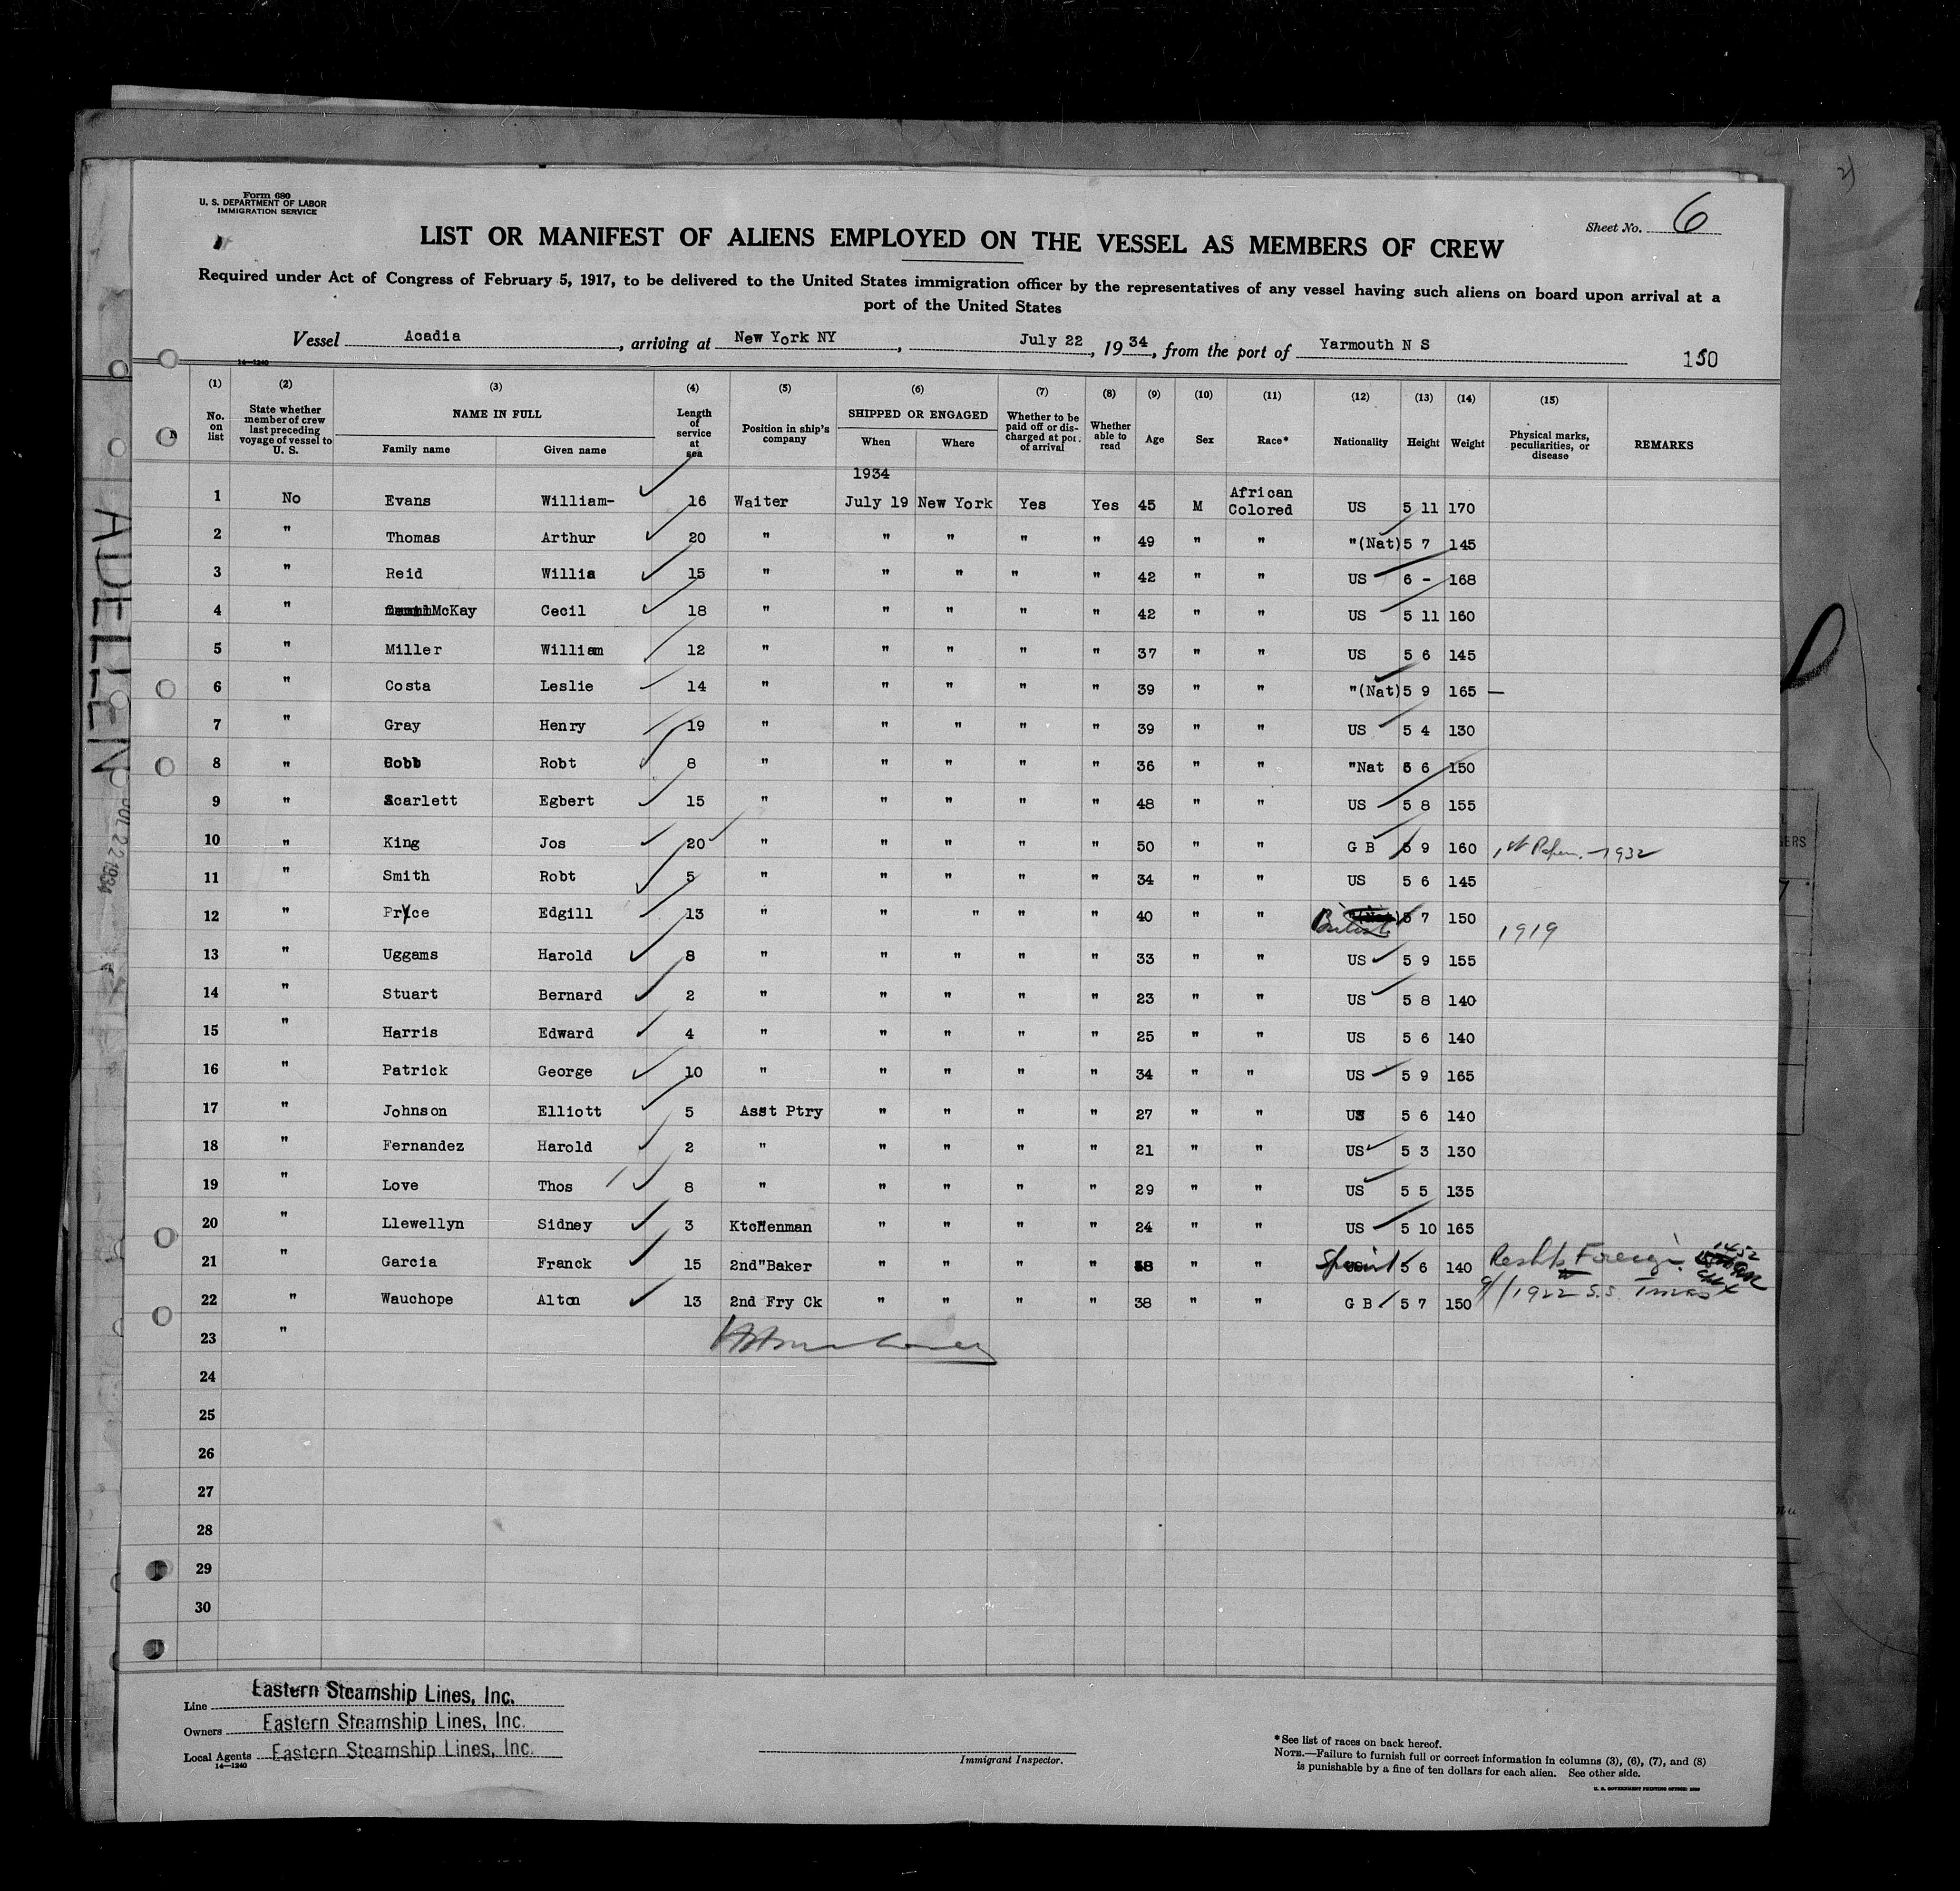 Form 680
U. S. DEPARTMENT OF LABOR
IMMIGRATION SERVICE
Sheet No. 6
LIST OR MANIFEST OF ALIENS EMPLOYED ON THE VESSEL AS MEMBERS OF CREW
Required under Act of Congress of February 5, 1917, to be delivered to the United States immigration officer by the representatives of any vessel having such aliens on board upon arrival at a
port of the United States
Vessel Acadia, arriving at New York NY, July 22, 1934, from the port of Yarmouth N S
14—1240
150
(1) (2) (3) (4) (5) (6) (7) (8) (9) (10) (11) (12) (13) (14) (15)
No. on list State whether member of crew last preceding voyage of vessel to U. S. NAME IN FULL Family name Given name Length of service at sea Position in ship's company SHIPPED OR ENGAGED When Where Whether to be paid off or discharged at port of arrival Whether able to read Age Sex Race* Nationality Height Weight Physical marks, peculiarities, or disease REMARKS
1934
1 No Evans William- 16 Waiter July 19 New York Yes Yes 45 M African Colored US 5 11 170
2 " Thomas Arthur 20 " " " " " 49 " " "(Nat) 5 7 145
3 " Reid Willia 15 " " " " " 42 " " US 6 - 168
4 " McKay Cecil 18 " " " " " 42 " " US 5 11 160
5 " Miller William 12 " " " " " 37 " " US 5 6 145
6 " Costa Leslie 14 " " " " " 39 " " "(Nat) 5 9 165 —
7 " Gray Henry 19 " " " " " 39 " " US 5 4 130
8 " Robt 8 " " " " " 36 " " "Nat 5 6 150
9 " Scarlett Egbert 15 " " " " " 48 " " US 5 8 155
10 " King Jos 20 " " " " " 50 " " G B 5 9 160 1st Papers - 1932
11 " Smith Robt 5 " " " " " 34 " " US 5 6 145
12 " Pryce Edgill 13 " " " " " 40 " " British 5 7 150 1919
13 " Uggams Harold 8 " " " " " 33 " " US 5 9 155
14 " Stuart Bernard 2 " " " " " 23 " " US 5 8 140
15 " Harris Edward 4 " " " " " 25 " " US 5 6 140
16 " Patrick George 10 " " " " " 34 " " US 5 9 165
17 " Johnson Elliott 5 Asst Ptry " " " " 27 " " US 5 6 140
18 " Fernandez Harold 2 " " " " " 21 " " US 5 3 130
19 " Love Thos 8 " " " " " 29 " " US 5 5 135
20 " Llewellyn Sidney 3 Ktchenman " " " " 24 " " US 5 10 165
21 " Garcia Franck 15 2nd"Baker " " " " 38 " " 5 6 140 Foreign
22 " Wauchope Alton 13 2nd Fry Ck " " " " 38 " " G B 5 7 150 1922 S.S.
23 "
24
25
26
27
28
29
30
Line Eastern Steamship Lines, Inc.
Owners Eastern Steamship Lines, Inc.
Local Agents Eastern Steamship Lines, Inc.
14—1240
Immigrant Inspector.
*See list of races on back hereof.
NOTE.—Failure to furnish full or correct information in columns (3), (6), (7), and (8)
is punishable by a fine of ten dollars for each alien. See other side.
U. S. GOVERNMENT PRINTING OFFICE:
JUL 22 1934